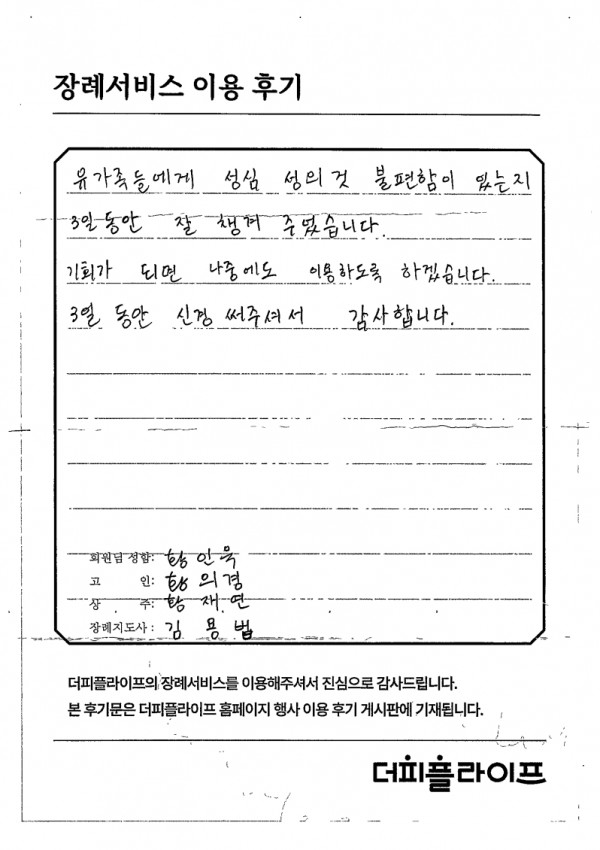 장례서비스 이용 후기
유가족들에게 성심 성의것 불편함이 있는지
3일 동안 잘 챙겨 주셨습니다.
기회가 되면 나중에도 이용하도록 하겠습니다.
3일 동안 신경 써주셔서 감사합니다.
회원님 성함: 황인욱
고 인: 황의경
상 주: 황재연
장례지도사 : 김용법
더피플라이프의 장례서비스를 이용해주셔서 진심으로 감사드립니다.
본 후기문은 더피플라이프 홈페이지 행사 이용 후기 게시판에 기재됩니다.
더피플라이프